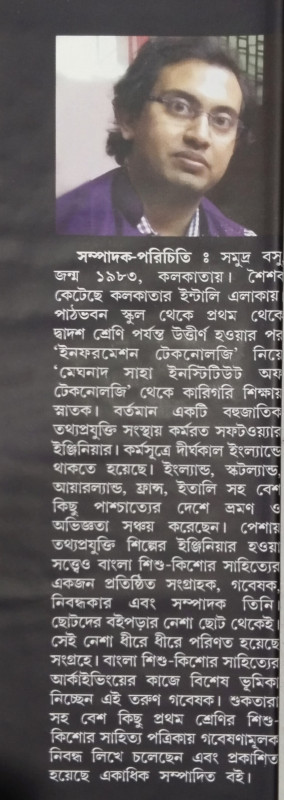 সম্পাদক-পরিচিতি ঃ সমুদ্র বসু
জন্ম ১৯৮৩, কলকাতায়। শৈশব
কেটেছে কলকাতার ইন্টালি এলাকায়।
পাঠভবন স্কুল থেকে প্রথম থেকে
দ্বাদশ শ্রেণি পর্যন্ত উত্তীর্ণ হওয়ার পর
‘ইনফরমেশন টেকনোলজি’ নিয়ে
‘মেঘনাদ সাহা ইনস্টিটিউট অফ
টেকনোলজি’ থেকে কারিগরি শিক্ষায়
স্নাতক। বর্তমান একটি বহুজাতিক
তথ্যপ্রযুক্তি সংস্থায় কর্মরত সফটওয়্যার
ইঞ্জিনিয়ার। কর্মসূত্রে দীর্ঘকাল ইংল্যান্ডে
থাকতে হয়েছে। ইংল্যান্ড, স্কটল্যান্ড,
আয়ারল্যান্ড, ফ্রান্স, ইতালি সহ বেশ
কিছু পাশ্চাত্যের দেশে ভ্রমণ ও
অভিজ্ঞতা সঞ্চয় করেছেন। পেশায়
তথ্যপ্রযুক্তি শিল্পের ইঞ্জিনিয়ার হওয়া
সত্ত্বেও বাংলা শিশু-কিশোর সাহিত্যের
একজন প্রতিষ্ঠিত সংগ্রাহক, গবেষক,
নিবন্ধকার এবং সম্পাদক তিনি।
ছোটদের বইপড়ার নেশা ছোট থেকেই।
সেই নেশা ধীরে ধীরে পরিণত হয়েছে
সংগ্রহে। বাংলা শিশু-কিশোর সাহিত্যের
আর্কাইভিংয়ের কাজে বিশেষ ভূমিকা
নিচ্ছেন এই তরুণ গবেষক। শুকতারা
সহ বেশ কিছু প্রথম শ্রেণির শিশু-
কিশোর সাহিত্য পত্রিকায় গবেষণামূলক
নিবন্ধ লিখে চলেছেন এবং প্রকাশিত
হয়েছে একাধিক সম্পাদিত বই।